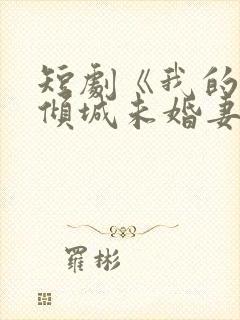 短劇《我的
傾城未婚妻
羅彬